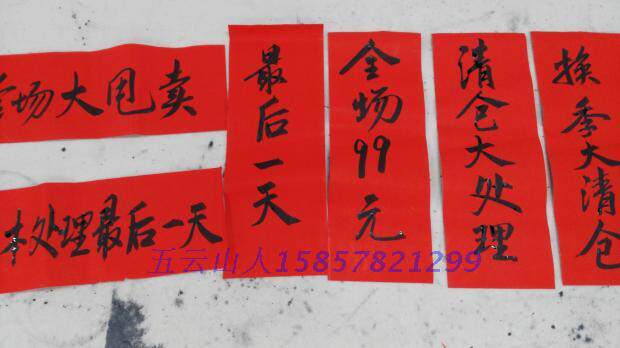 全场大甩卖
本处理最后一天
最后一天
全场99元
清仓大处理
换季大清仓
五云山人15857821299